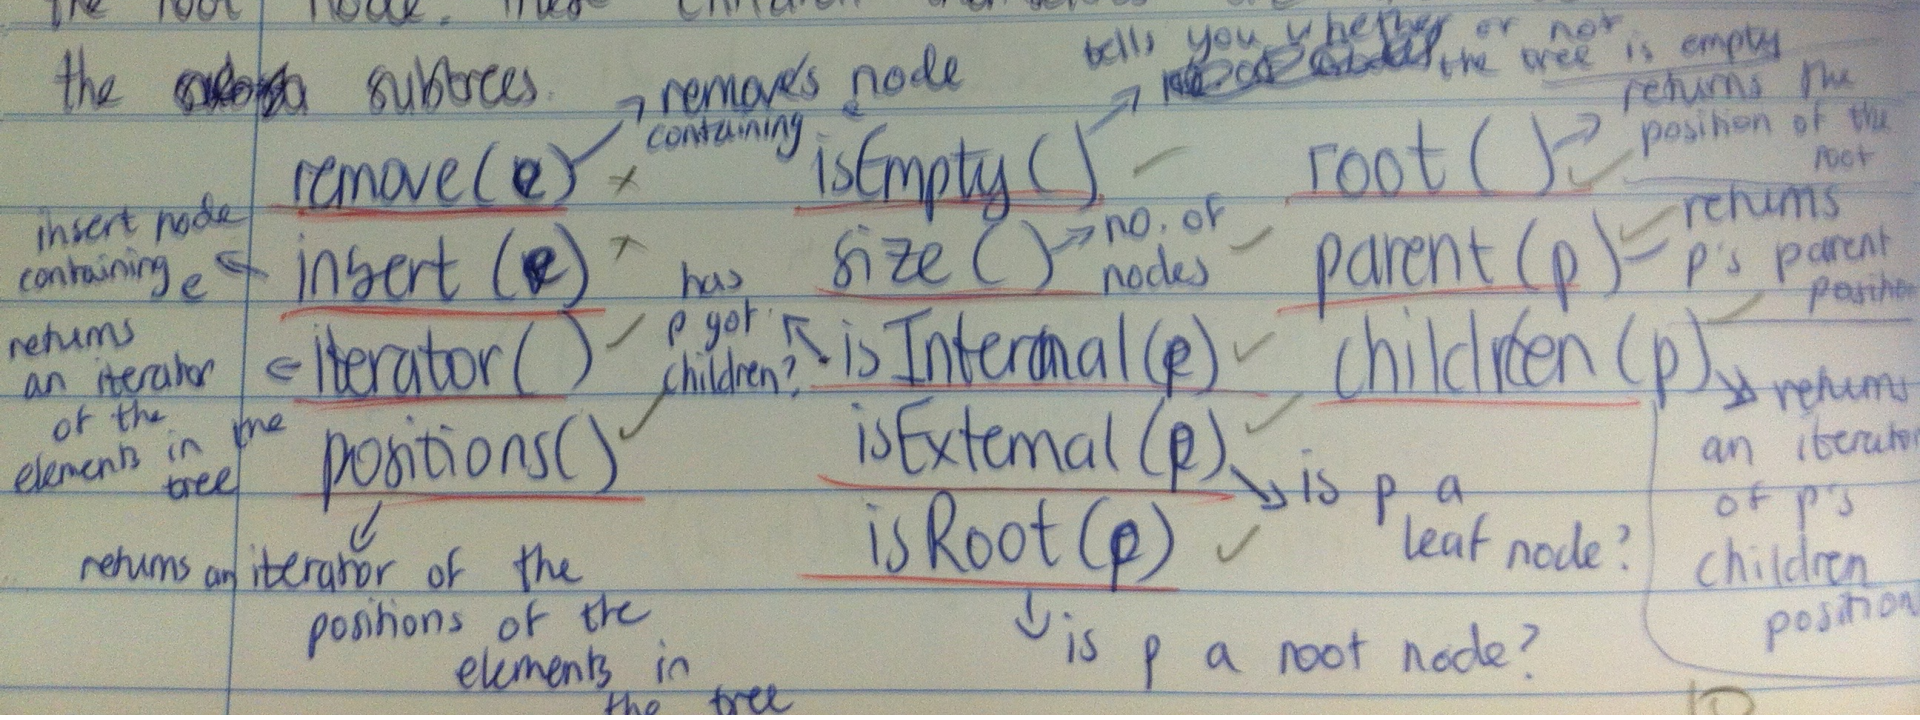 the root node. These children themselves are the
the subtrees.
removes node
containing e
tells you whether or not
the tree is empty
returns the
position of the
root
remove(e)
isEmpty()
root()
insert node
containing e
insert (e)
size()
no. of
nodes
parent(p)
returns
p's parent
position
returns
an iterator
of the
elements in the
tree
iterator()
has
p got
children?
isInternal(p)
children(p)
returns
an iterator
of p's
children
position
positions()
isExternal(p)
is p a
leaf node?
returns an iterator of the
positions of the
elements in
the tree
isRoot(p)
is p a root node?